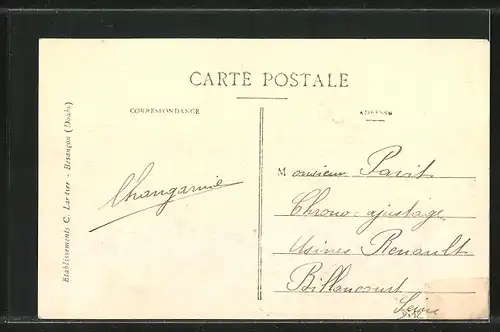 CARTE POSTALE
CORRESPONDANCE
ADRESSE
Etablissements C. Lardier - Besançon (Doubs)
Changarnie
Monsieur Pavit
Chrono-ajustage
Usines Renault
Billancourt
Seine